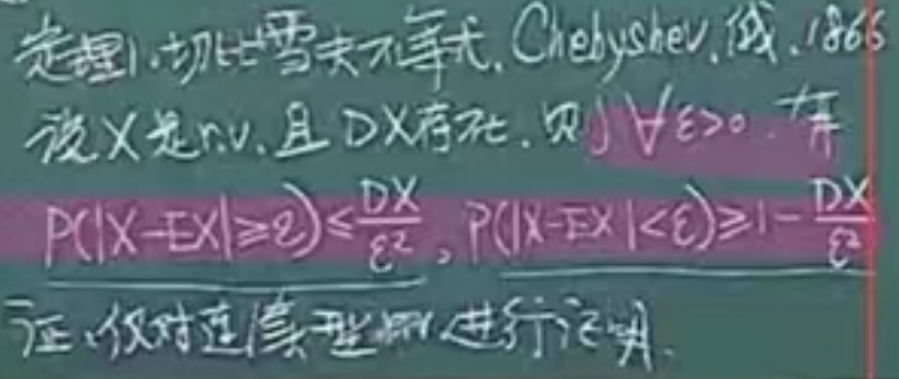 定理1.切比雪夫不等式.Chebyshev.俄.1866
设X是r.v.且DX存在.则∀ε>0.有
P(|X-EX|≥ε)≤DX/ε², P(|X-EX|<ε)≥1-DX/ε²
证:仅对连续型r.v.进行证明.